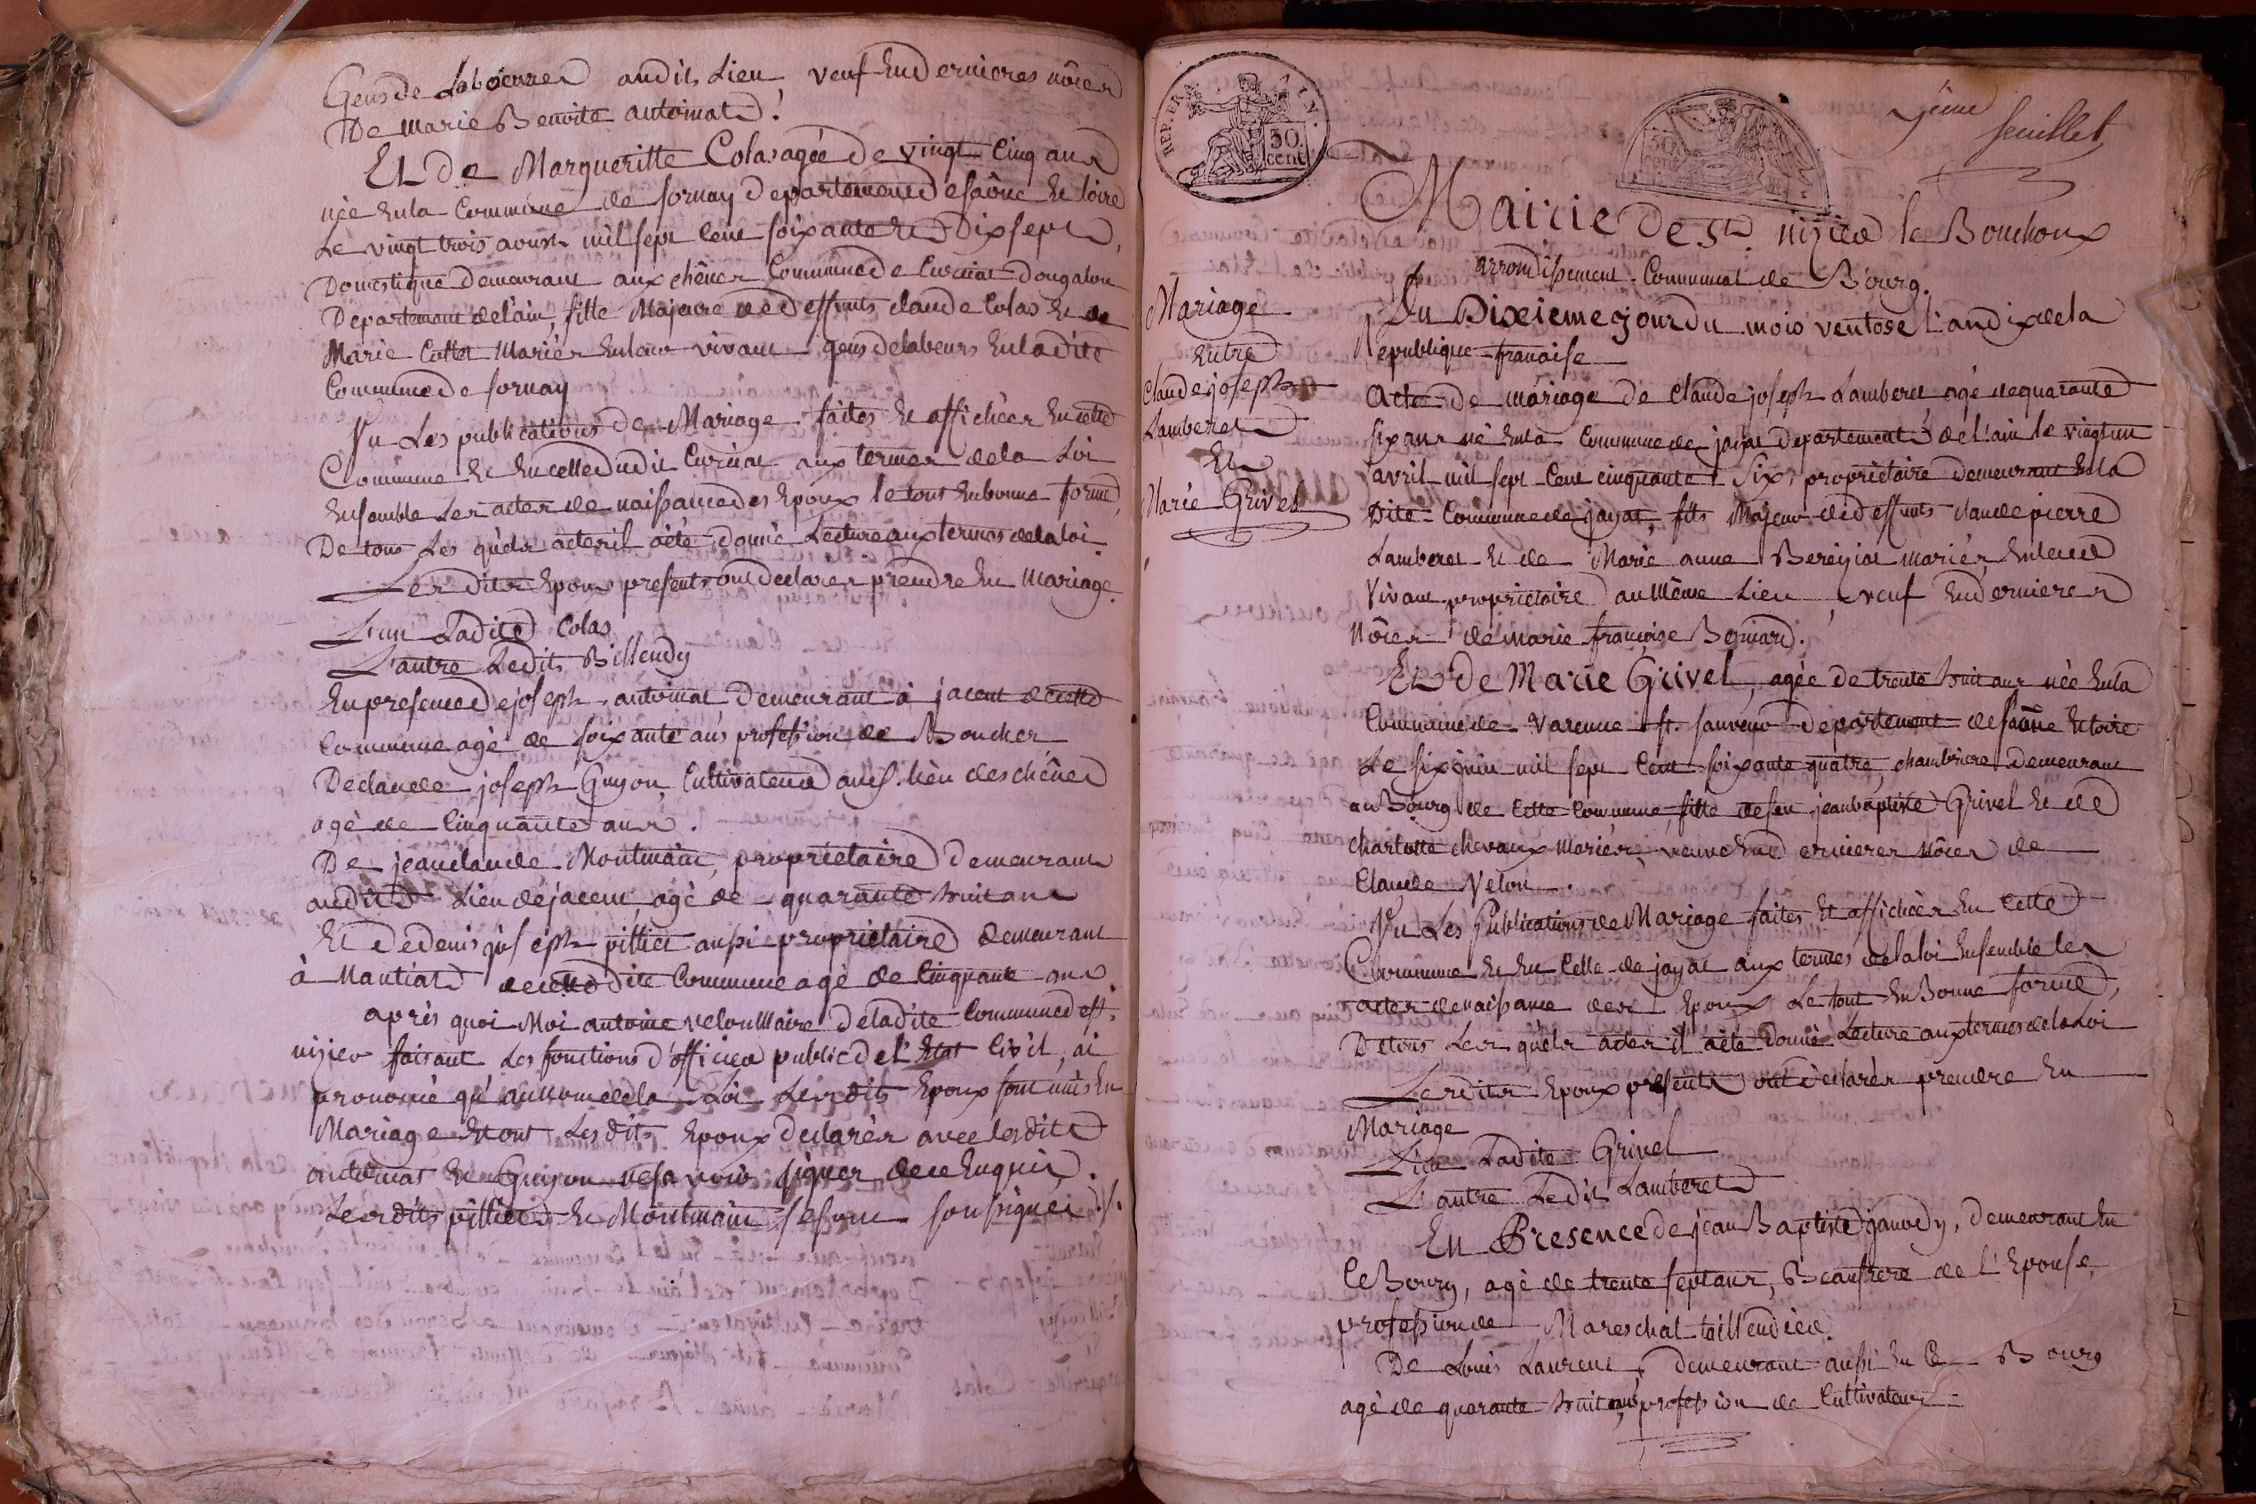 Gens de Laboeures audit Lieu, veuf En dernieres nôces
De Marie Benoite antoinat.
Et De Margueritte Colas agée De vingt Cinq ans
née En la Commune de sornay Departement de saône Et loire
Le vingt trois aoust mil sept Cent soixante Et Dix sept,
Domestique demeurant aux chênes Commune de Curciat-Dongalon
Departement de l'ain, fille Majeure de deffunts claude Colas Et de
Marie Cottet Mariés En leur vivant gens de labeurs En ladite
Commune de sornay
Vu Les publications De Mariage faites Et affichées En cette
Commune Et En celle dudit Curciat aux termes de la Loi
Ensemble Les actes de naissance des Epoux le tout En bonne forme,
De tous Les quels actes il a été donné Lecture aux termes de la loi.
Lesdits Epoux presents ont declarés prendre En Mariage.
L'un Ladite Colas
L'autre Ledit Billendy
En presence de joseph antoinat Demeurant à jacent de cette
Commune agé de soixante ans profession de Boucher
De claude joseph Guyon, Cultivateur aus. lieu des chênes
agé de Cinquante ans.
De jean claude Montmain, proprietaire demeurant
audit Lieu de jacent agé de quarante huit ans
Et De denis joseph pilliet aussi proprietaire demeurant
à Mantiat de cette dite Commune agé de Cinquante ans.
après quoi Moi antoine velon Maire De ladite Commune de st.
nizier faisant Les fonctions d'officier public de l'Etat Civil, ai
prononcé qu'au nom de la Loi Lesdits Epoux sont unis En
Mariage Et ont Lesdits Epoux declarés avec lesdits
antoinat Et Guyon ne savoir signer de ce Enquis.
Lesdits pilliet Et Montmain se sont soussignés ./.
REP. FRA.
50 cent
50 cent
feuillet
Mairie De St. nizier le Bouchoux
arrondissement Communal de Bourg.
Mariage
Entre
Claude joseph
Lamberet
Et
Marie Grivel
Du Dixieme jour du mois ventose l'an dix de la
Republique française
Acte De mariage de Claude joseph Lamberet agé de quarante
six ans né En la Commune de jayat departement de l'ain le vingt un
avril mil sept Cent cinquante Six, proprietaire demeurant En la
Dite Commune de jayat, fils Majeur de deffunts claude pierre
Lamberet Et de Marie anne Bereyiat mariés En leur
Vivant proprietaire au Même Lieu, veuf En dernieres
Nôces de marie françoise Boniard.
Et De Marie Grivel, agée de trente huit ans née En la
Commune de Varenne st. sauveur departement de saône Et loire
Le six juin mil sept Cent soixante quatre, chambriere demeurant
au Bourg de Cette Commune, fille de feu jean baptiste Grivel Et de
charlotte chevaux Mariés, veuve En dernieres Nôces de
Claude Velon.
Vu Les Publications de Mariage faites Et affichées En Cette
Commune Et En Celle de jayat aux termes de la loi Ensemble les
actes de naissance des Epoux Le tout En Bonne forme,
De tous Les quels actes il a été donné Lecture aux termes de la Loi
Lesdits Epoux presents ont declarés prendre En
Mariage
L'un Ladite Grivel
L'autre Ledit Lamberet
En Presence de jean Baptiste janody, demeurant En
Ce Bourg, agé de trente sept ans, Beaufrere de l'Epouse,
profession de Mareschal taillendier.
De Louis Laurent, demeurant aussi En Ce Bourg
agé de quarante huit ans, profession de Cultivateur